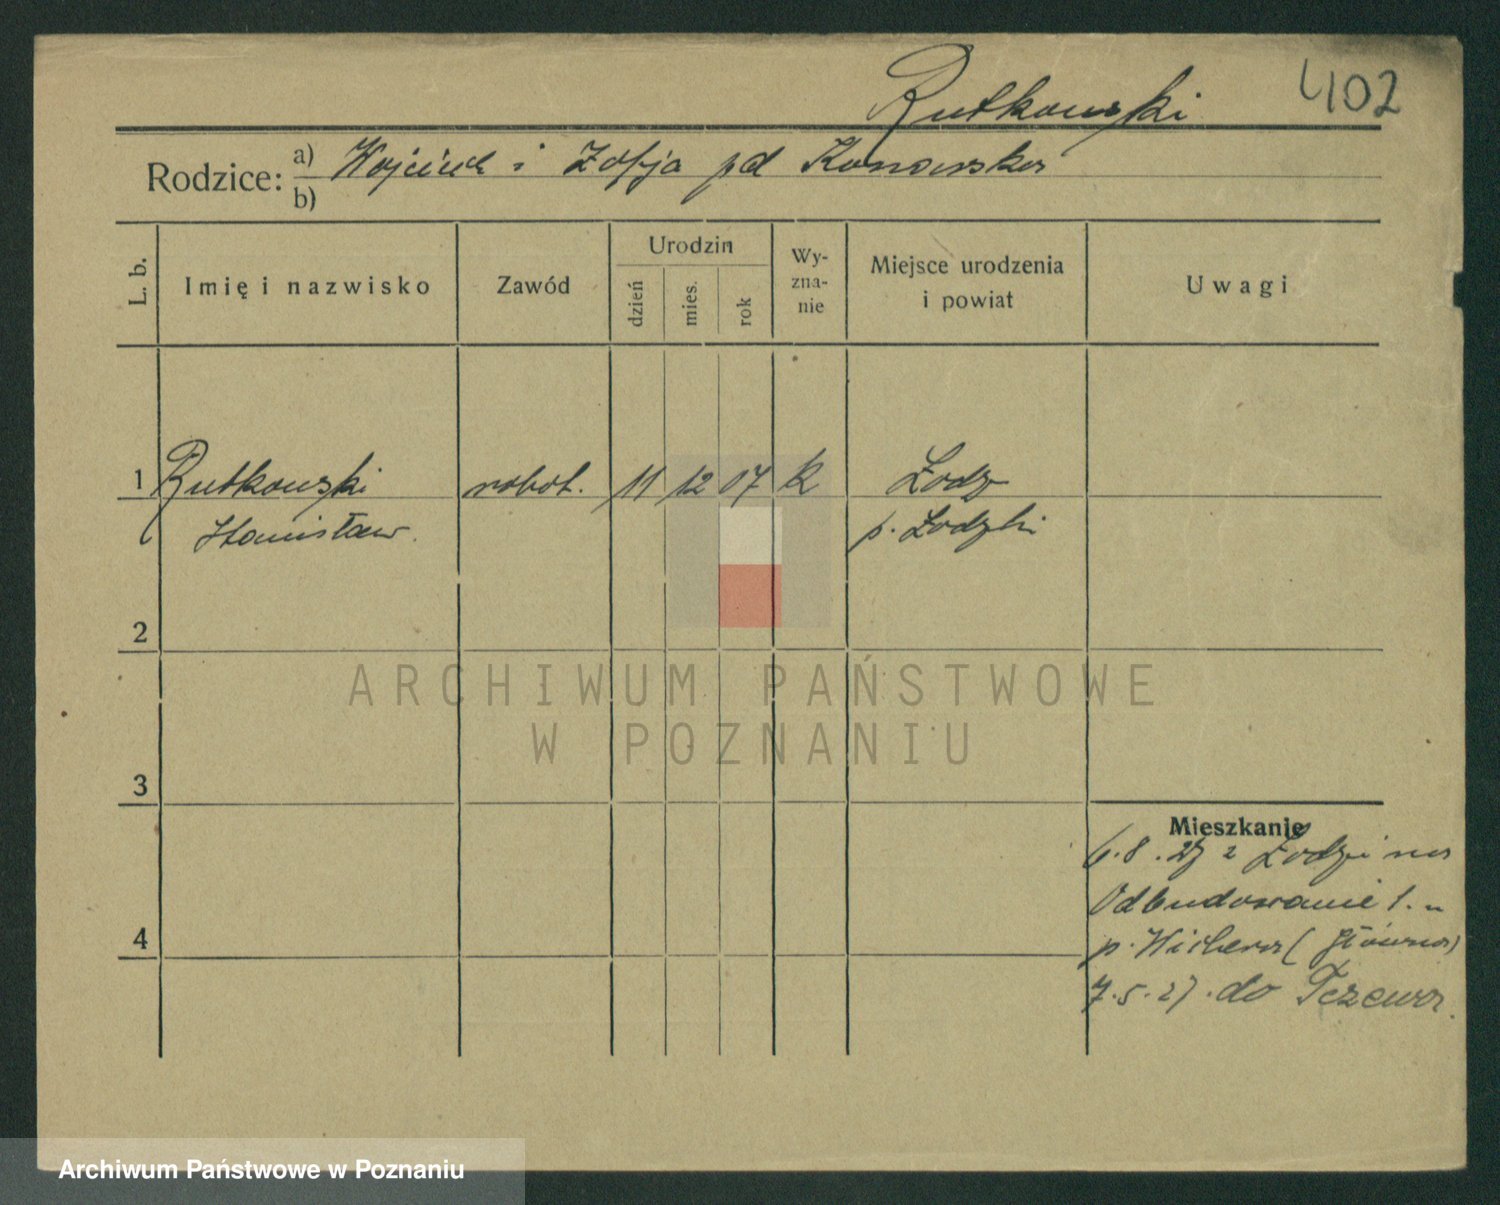 Rutkowski 402
Rodzice: a) Wojciech i Zofja pd Konowska
b)
L. b. Imię i nazwisko Zawód Urodzin dzień mies. rok Wy-zna-nie Miejsce urodzenia i powiat Uwagi
1 Rutkowski robot. 11 12 07 k Łodz
Stanisław. p. Łodzki
2
ARCHIWUM PAŃSTWOWE
W POZNANIU
3
Mieszkanie
6.8. z Łodzi na
Odbudowanie 1.
4 p. Wichera (Główna)
7.5.27. do Tczewa.
Archiwum Państwowe w Poznaniu